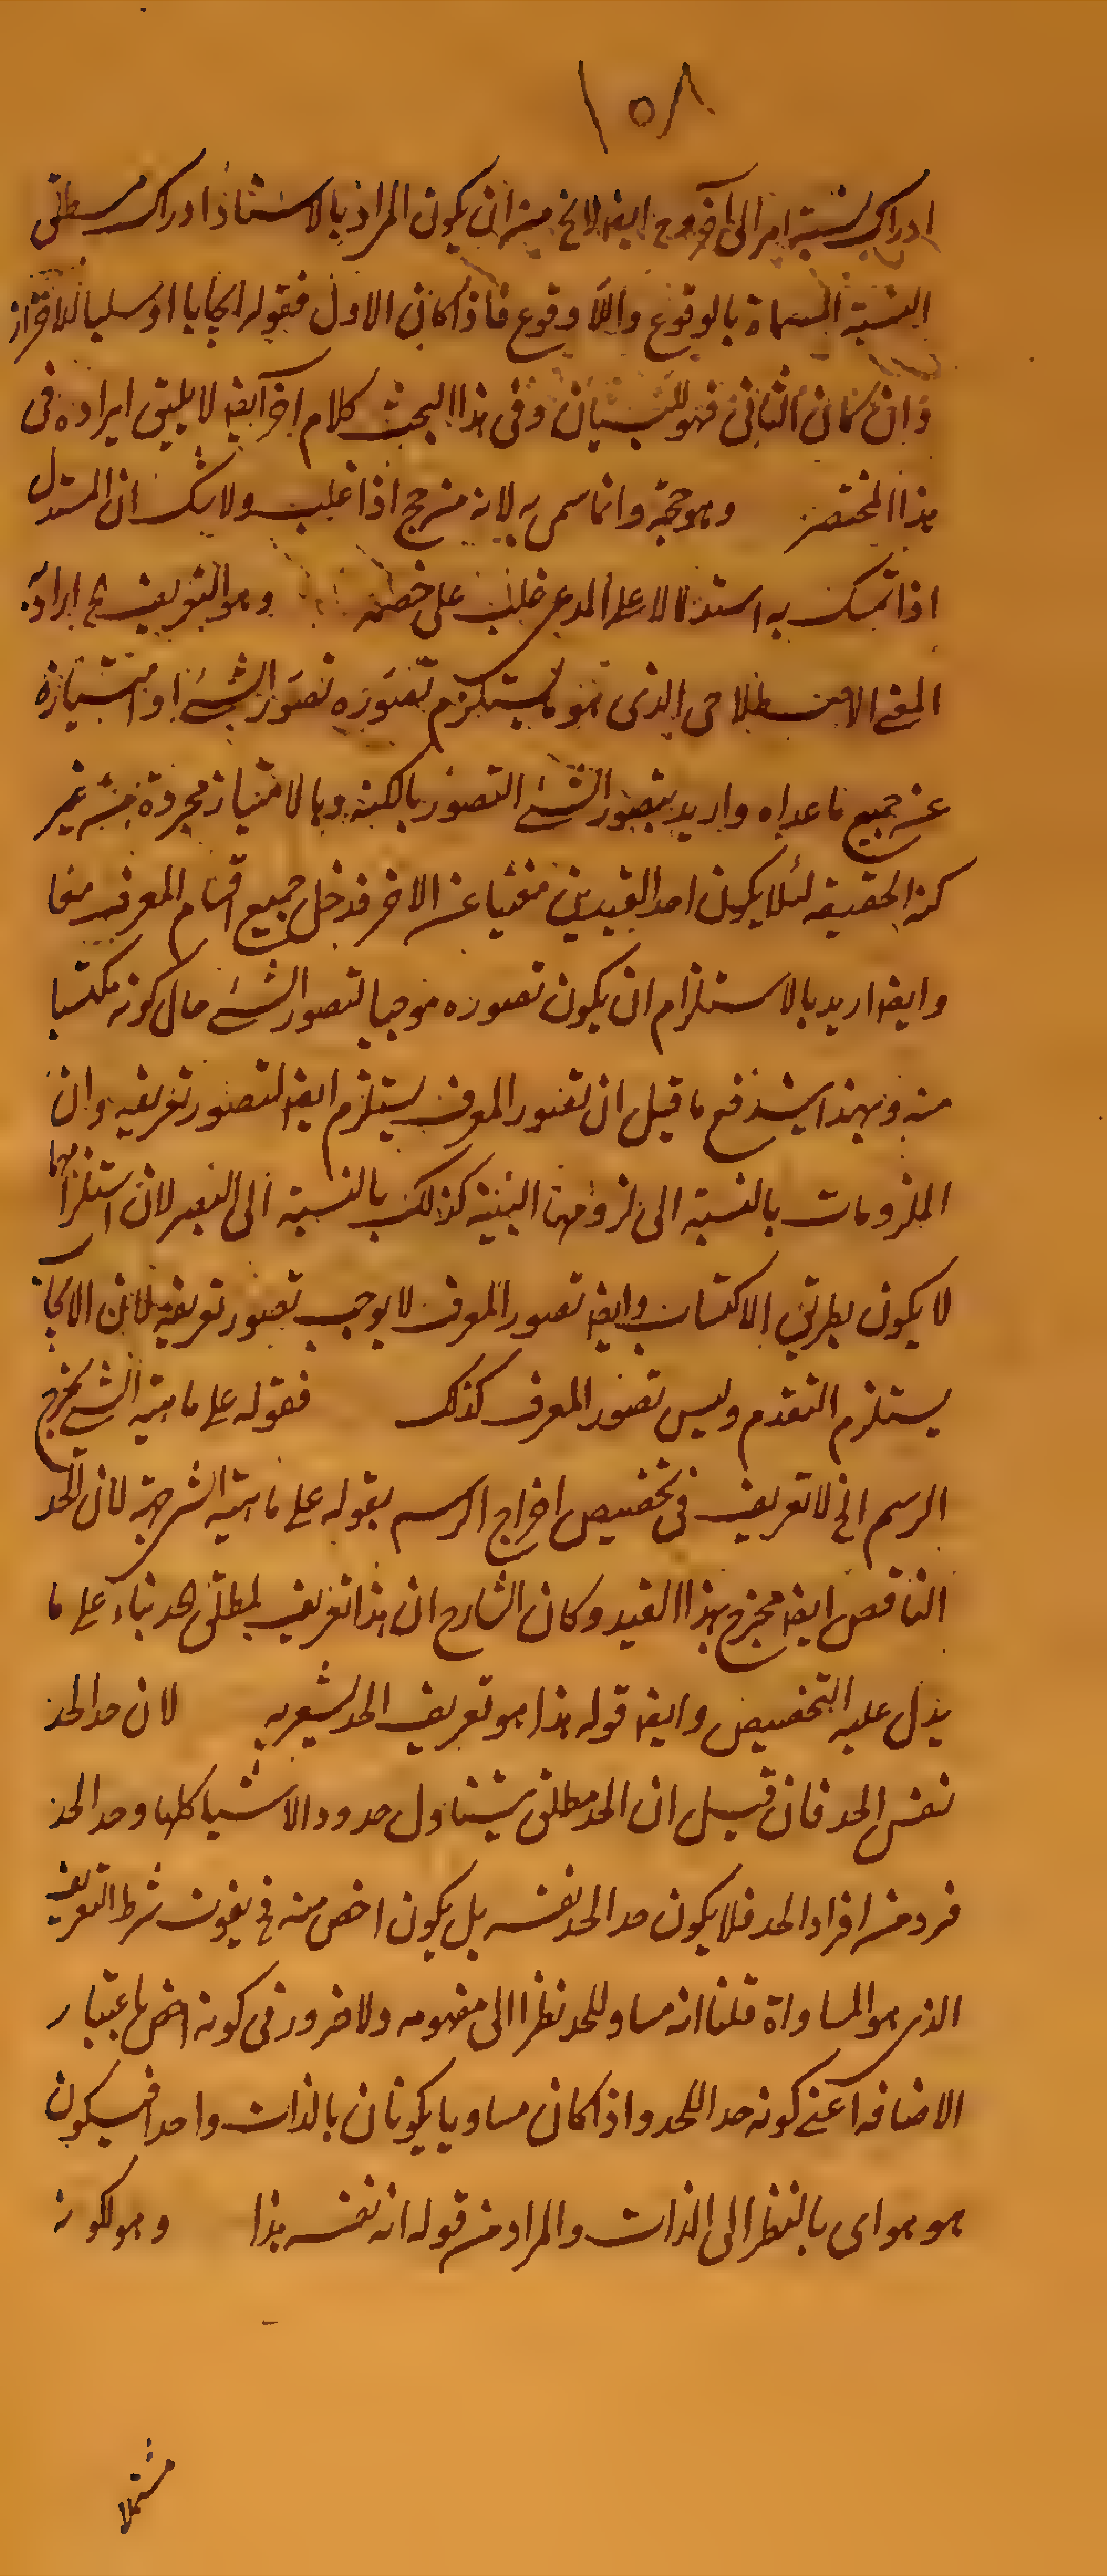 ١٥٨
ادراك نسبة امر الى آخر وح ايضا لا يخ من ان يكون المراد بالاسناد ادراك مطلق
النسبة المسماة بالوقوع واللاوقوع فاذا كان الاول فقوله ايجابا او سلبا للاحتراز
وان كان الثانى فهو للبيان وفى هذا البحث كلام آخر ايضا لا يليق ايراده فى
هذا المختصر وهو حجة وانما سمى به لانه من حج اذا غلب ولا شك ان المستدل
اذا تمسك به استدلالا على المدعى غلب على خصمه وهو التعريف ايراد به
المعنى الاصطلاحى الذى هو ما يستلزم تصوره تصور الشئ او امتيازه
عن جميع ما عداه واريد بتصور الشئ التصور بالكنه وبالامتياز مجرده من غير
كنه الحقيقة لئلا يكون احد القيدين مغنيا عن الاخر فدخل جميع اقسام المعرف
وايضا اريد بالاستلزام ان يكون تصوره موجبا لتصور الشئ حال كونه مكتسبا
منه وبهذا يندفع ما قيل ان تصور المعرف يستلزم ايضا لتصور تعريفه وان
الملزومات بالنسبة الى لزومها البينة كذلك بالنسبة الى لان استلزامها
لا يكون بطريق الاكتساب وايضا تصور المعرف لا يوجب تصور تعريفه لان الايجاب
يستلزم التقدم وليس تصور المعرف كذلك فقوله على ماهية الشئ يخرج
الرسم الخ لا تعريف فى تخصيص اخراج الرسم بقوله على ماهية الشئ لان الحد
الناقص ايضا مخرج بهذا القيد وكان الشارح ان هذا تعريف لمطلق الحد بناء على ما
يدل عليه التخصيص وايضا قوله هذا هو تعريف الحد يشعر به لان حد الحد
نفس الحد فان قيل ان الحد مطلق يتناول حدود الاشيا كلها وحد الحد
فرد من افراد الحد فلا يكون حد الحد نفسه بل يكون اخص منه فح يفوت شرط التعريف
الذى هو المساواة قلنا انه مساو للحد نظرا الى مفهومه ولا ضرور فى كونه اخص باعتبار
الاضافه اعنى كونه حد اللحد واذا كان مساويا يكونان بالذات واحدا فيكون
هو هو اى بالنظر الى الذات والمراد من قوله انه نفسه هذا وهو لكونه
مشتملا